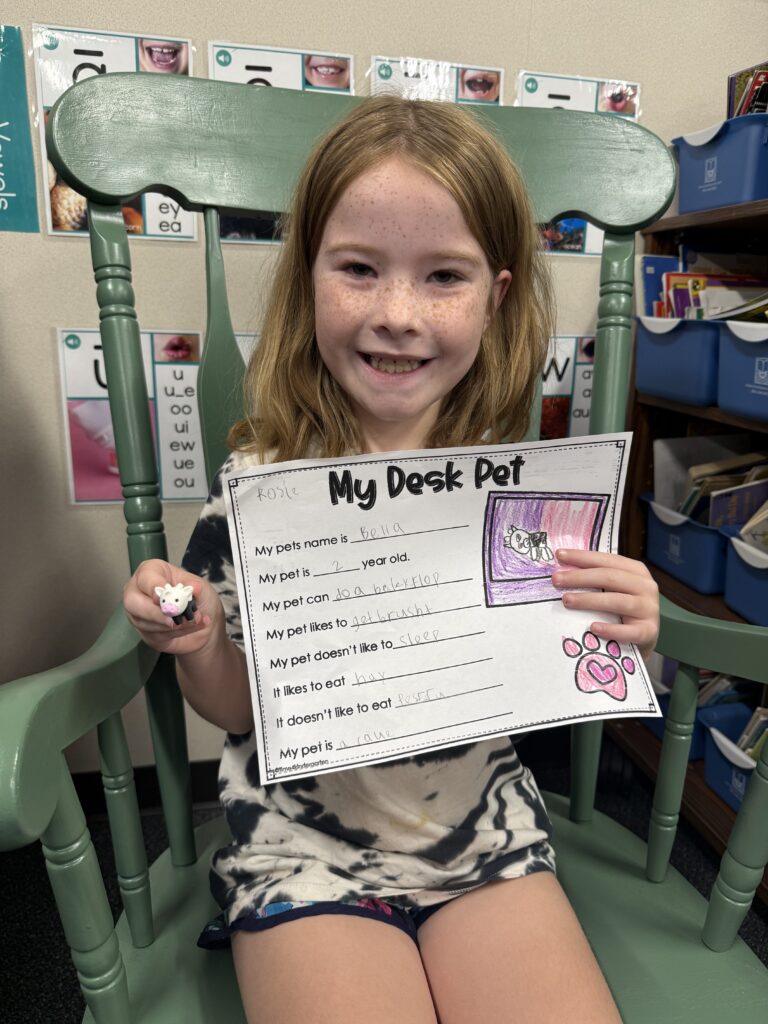 Vowels
ey
ea
u
u_e
oo
ui
ew
ue
ou
w
Rosie
My Desk Pet
My pets name is Bella
My pet is 2 year old.
My pet can do a bakflop
My pet likes to get brusht
My pet doesn't like to sleep
It likes to eat hay
It doesn't like to eat
My pet is a caue